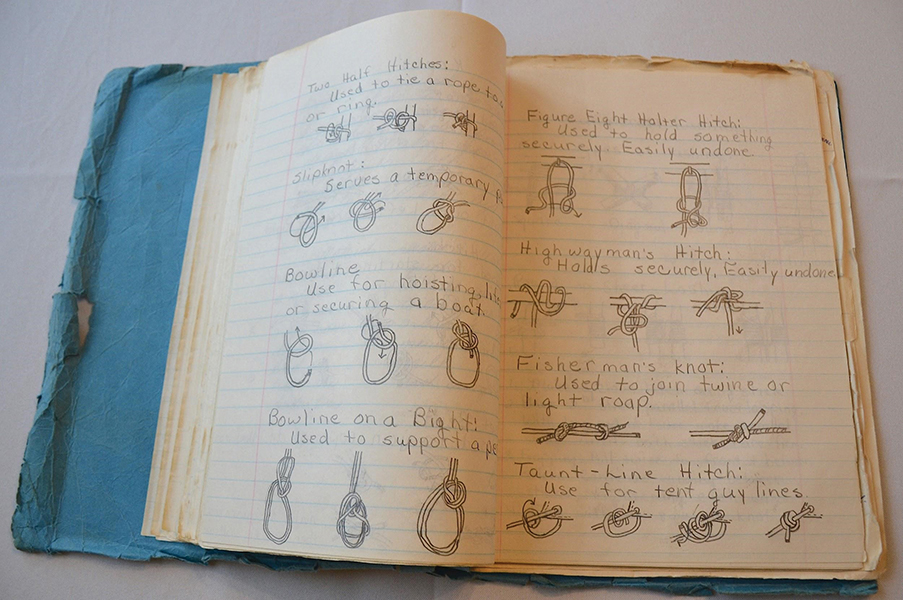 Two Half Hitches:
Used to tie a rope to
or ring.
Slipknot:
Serves a temporary
Bowline
Use for hoisting,
or securing a boat.
Bowline on a Bight:
Used to support a
Figure Eight Halter Hitch:
Used to hold something
securely. Easily undone.
Highwayman's Hitch:
Holds securely, Easily undone
Fisherman's knot:
Used to join twine or
light roap.
Taunt-Line Hitch:
Use for tent guy lines.